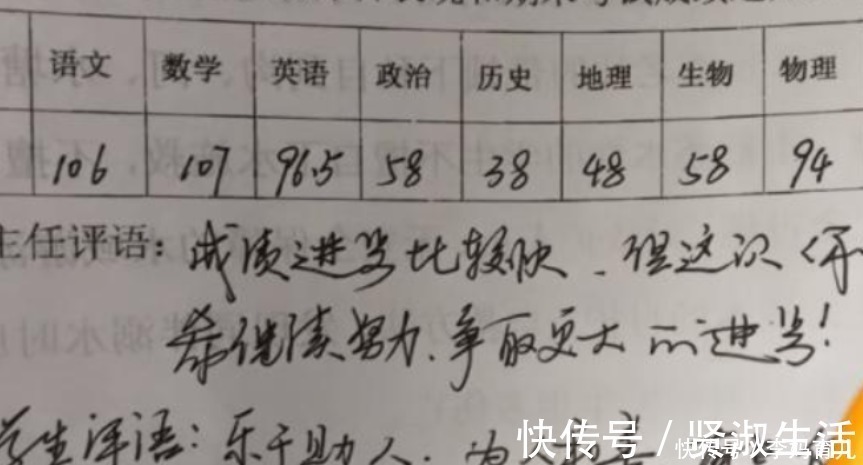 语文 数学 英语 政治 历史 地理 生物 物理
106 107 96.5 58 38 48 58 94
主任评语：成绩进步比较快，但这次
希继续努力，争取更大的进步！
学生评语：乐于助人，为
快传号／贤淑生活